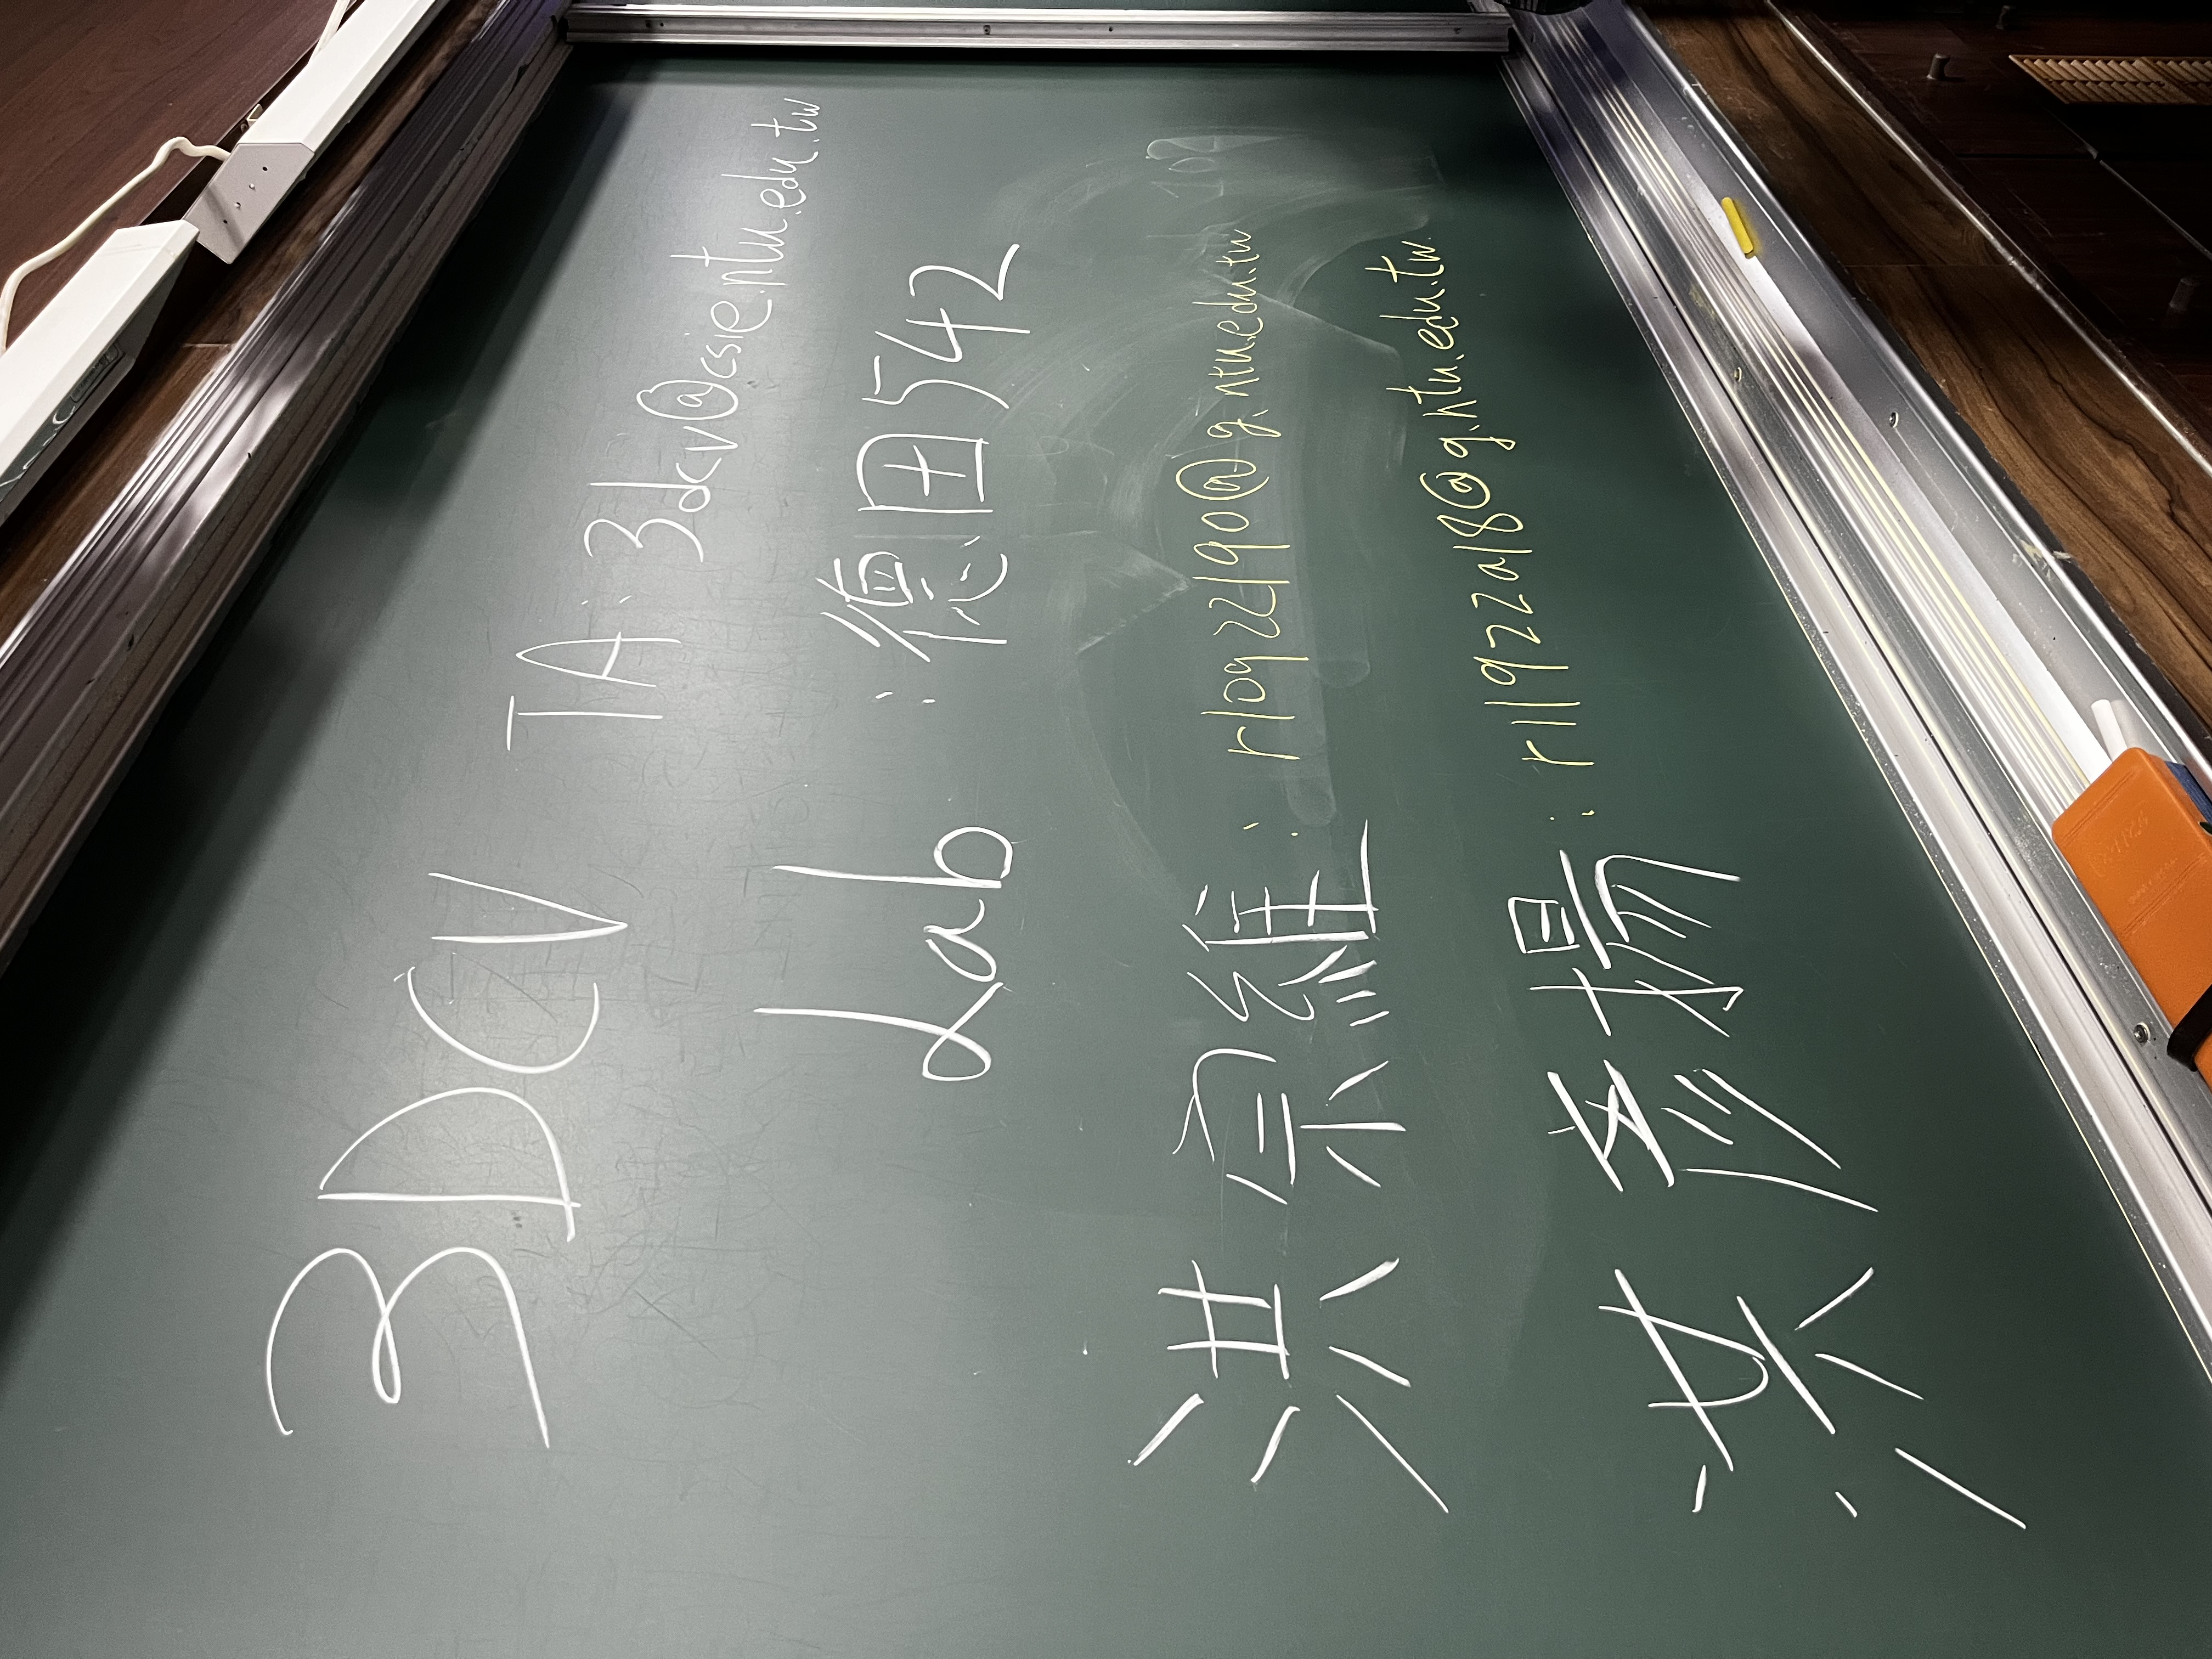 3DCV
TA: 3dcv@csie.ntu.edu.tw
Lab :德田542
洪宗維: r10922190@g.ntu.edu.tw
洪彥揚: r11922a18@g.ntu.edu.tw